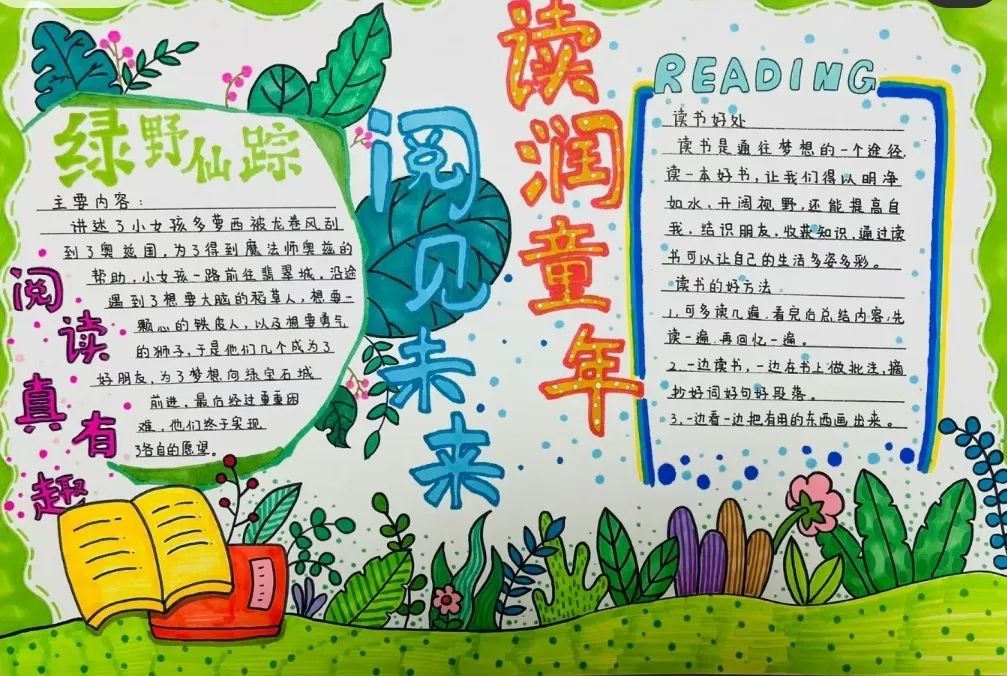 读润童年
阅见未来
绿野仙踪
主要内容：
讲述了小女孩多萝西被龙卷风刮
到了奥兹国，为了得到魔法师奥兹的
帮助，小女孩一路前往翡翠城，沿途
遇到了想要大脑的稻草人，想要一
颗心的铁皮人，以及想要勇气
的狮子，于是他们几个成为了
好朋友，为了梦想向绿宝石城
前进，最后经过重重困
难，他们终于实现
了各自的愿望。
阅读真有趣
READING
读书好处
读书是通往梦想的一个途径.
读一本好书，让我们得以明净
如水，开阔视野，还能提高自
我，结识朋友，收获知识，通过读
书可以让自己的生活多姿多彩。
读书的好方法
1，可多读几遍，看完自总结内容，先
读一遍，再回忆一遍。
2、一边读书，一边在书上做批注，摘
抄好词好句好段落。
3，一边看一边把有用的东西画出来。